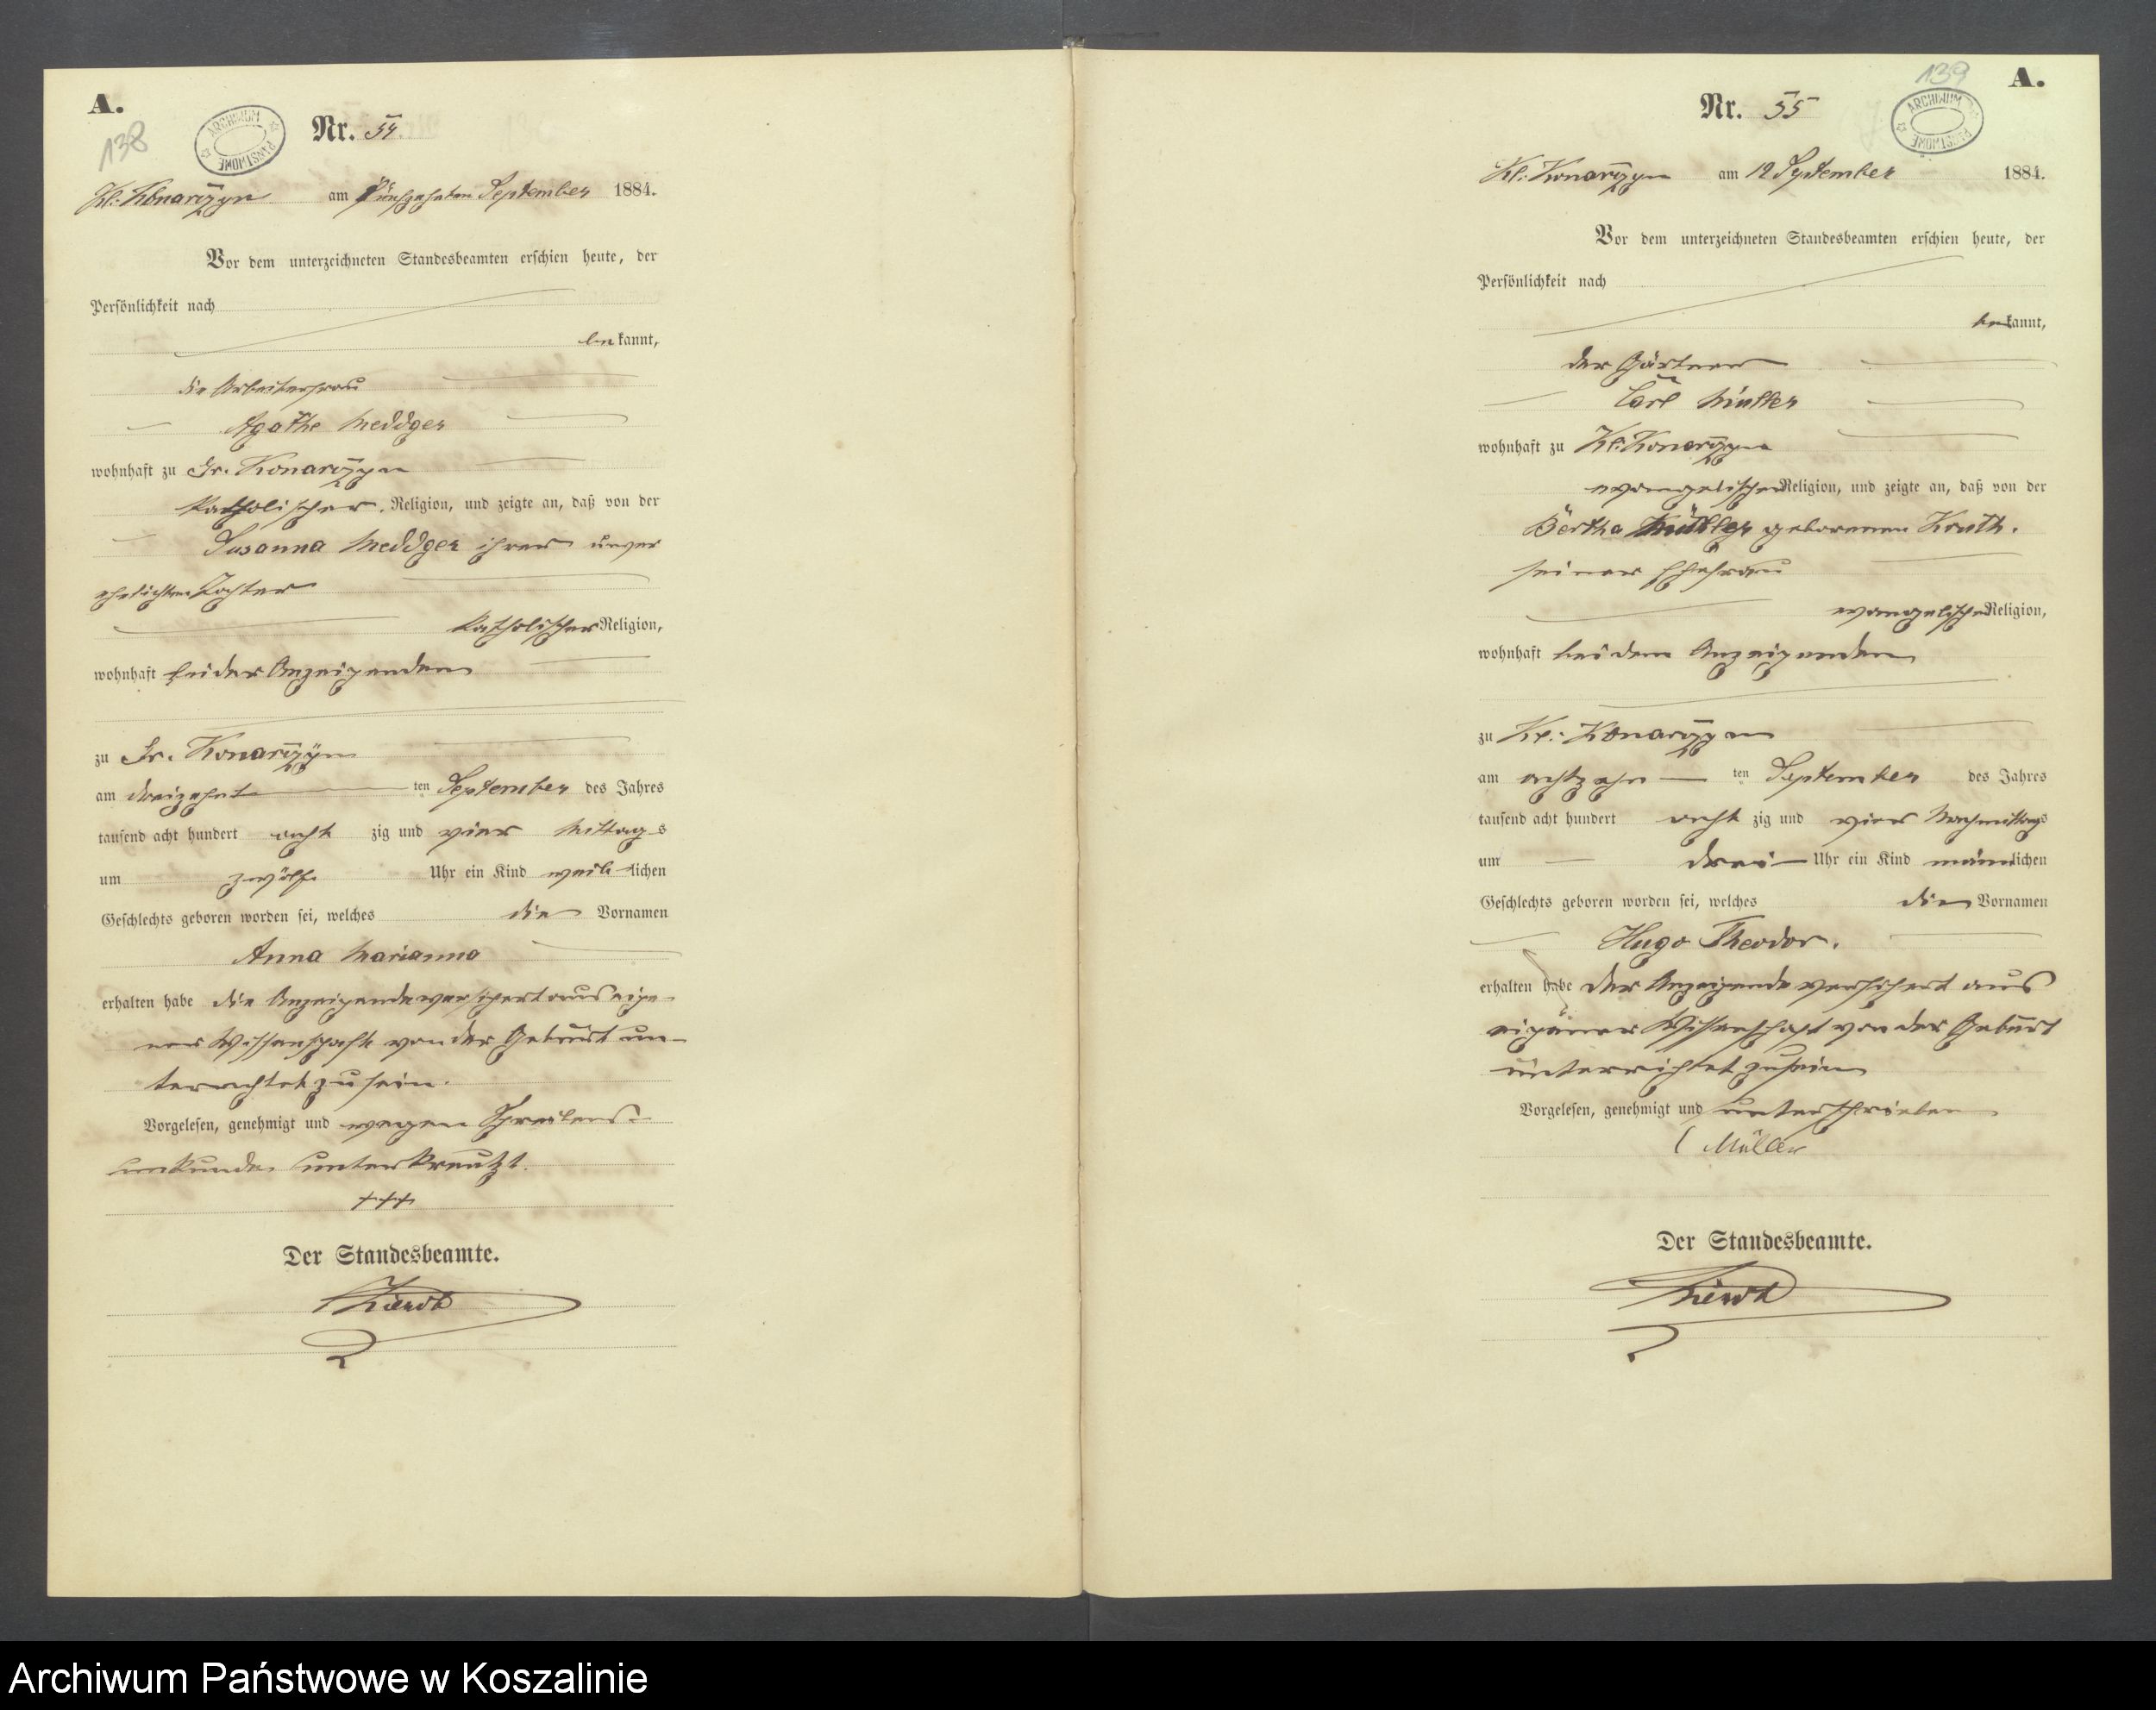 A.
138
ARCHIWUM PAŃSTWOWE
Nr. 54.
Kl: Konarczyn am Fünfzehnten September 1884.
Vor dem unterzeichneten Standesbeamten erschien heute, der
Persönlichkeit nach
bekannt,
die Arbeiterfrau
Agathe Meddger
wohnhaft zu Gr. Konarczyn
katholischer Religion, und zeigte an, daß von der
Susanna Meddger ihrer unver
ehelichten Tochter
katholischer Religion,
wohnhaft bei der Anzeigenden
zu Gr. Konarczyn
am dreizehnten September des Jahres
tausend acht hundert acht zig und vier Mittags
um zwölf Uhr ein Kind weiblichen
Geschlechts geboren worden sei, welches die Vornamen
Anna Marianna
erhalten habe die Anzeigende versichert aus eige-
ner Wissenschaft von der Geburt un-
terrichtet zu sein.
Vorgelesen, genehmigt und wegen Schreibens-
unkunde unterkreuzt.
+++
Der Standesbeamte.
A.
139
ARCHIWUM PAŃSTWOWE
Nr. 55
Kl: Konarczyn am 19 September 1884.
Vor dem unterzeichneten Standesbeamten erschien heute, der
Persönlichkeit nach
bekannt,
der Gärtner
Carl Müller
wohnhaft zu Kl: Konarczyn
evangelischer Religion, und zeigte an, daß von der
Bertha Müller geborenen Kruth.
seiner Ehefrau
evangelischer Religion,
wohnhaft bei dem Anzeigenden
zu Kl: Konarczyn
am achtzehn ten September des Jahres
tausend acht hundert acht zig und vier Nachmittags
um drei Uhr ein Kind männlichen
Geschlechts geboren worden sei, welches die Vornamen
Hugo Theodor.
erhalten habe der Anzeigende versichert aus
eigener Wissenschaft von der Geburt
unterrichtet zu sein
Vorgelesen, genehmigt und unterschrieben
C Müller
Der Standesbeamte.
Archiwum Państwowe w Koszalinie